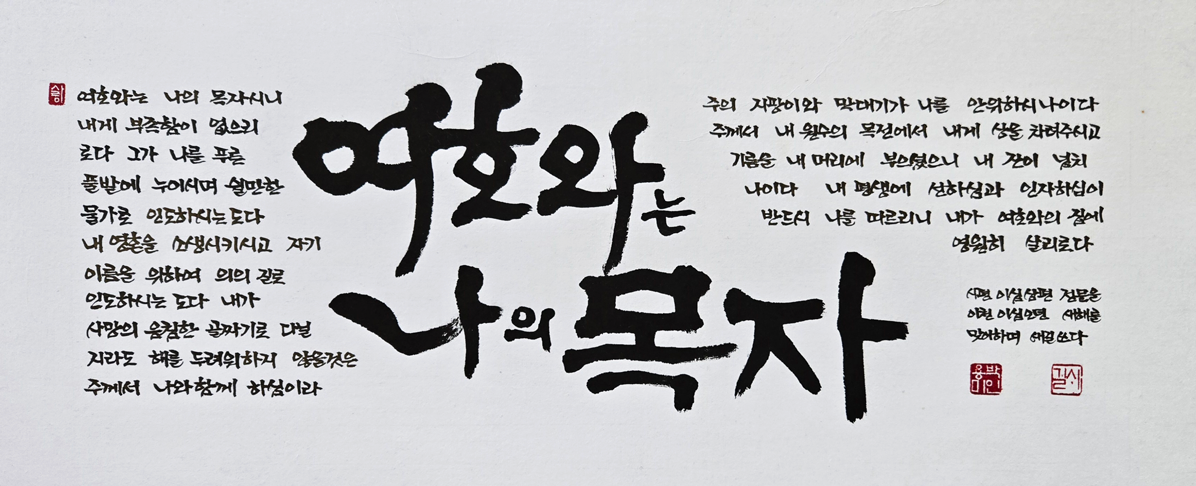 여호와는
나의 목자
여호와는 나의 목자시니
내게 부족함이 없으리
로다 그가 나를 푸른
풀밭에 누이시며 쉴만한
물가로 인도하시는도다
내 영혼을 소생시키시고 자기
이름을 위하여 의의 길로
인도하시는도다 내가
사망의 음침한 골짜기로 다닐
지라도 해를 두려워하지 않을것은
주께서 나와함께 하심이라
주의 지팡이와 막대기가 나를 안위하시나이다
주께서 내 원수의 목전에서 내게 상을 차려주시고
기름을 내 머리에 부으셨으니 내 잔이 넘치
나이다 내 평생에 선하심과 인자하심이
반드시 나를 따르리니 내가 여호와의 집에
영원히 살리로다
시편 이십삼편 전문을
이천 이십오년 새해를
맞이하며 새길 쓰다